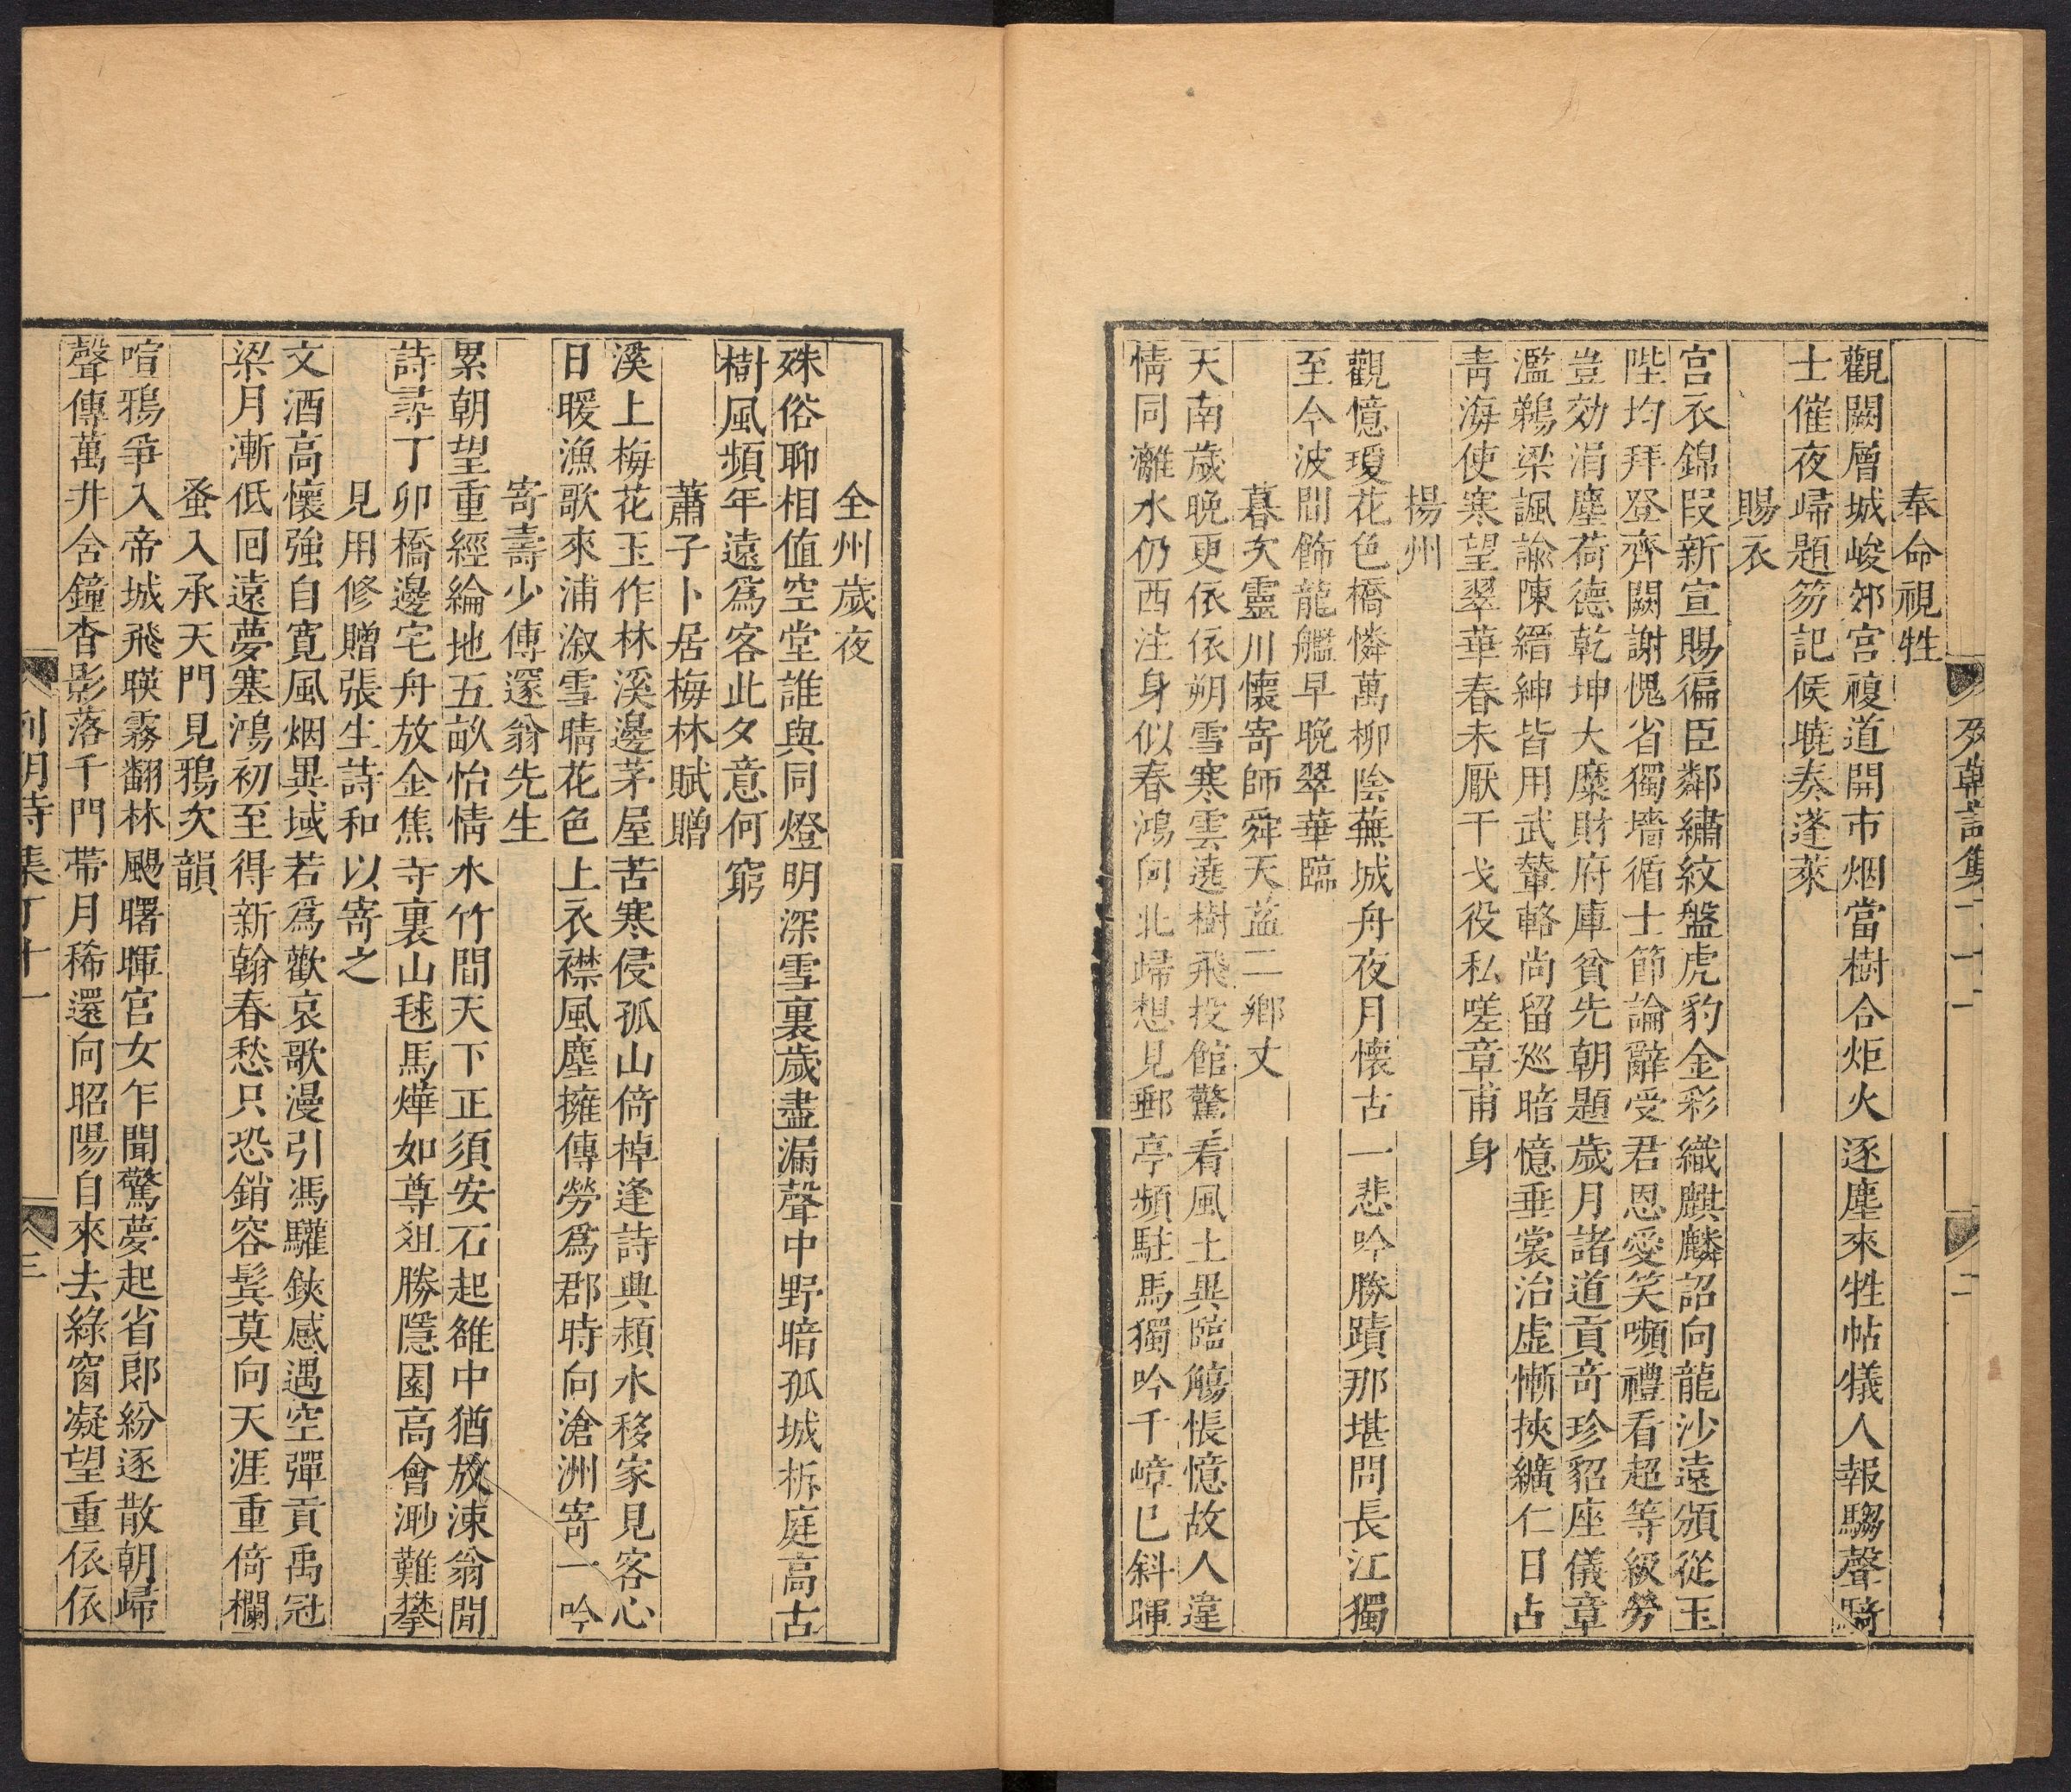 奉命視牲
觀闕層城峻郊宮複道開市烟當樹合炬火逐塵來牲帖犠人報騶聲騎
士催夜歸題笏記候曉奏蓬萊
賜衣
宮衣錦叚新宣賜徧臣鄰繡紋盤虎豹金彩織麒麟詔向龍沙遠頒從玉
陛均拜登齊闕謝愧省獨墻循士節論辭受君恩愛笑嚬禮看超等級勞
豈効涓塵荷德乾坤大糜財府庫貧先朝題歲月諸道貢奇珍貂座儀章
濫鵜梁諷諭陳縉紳皆用武輦輅尚留廵暗憶垂裳治虛慚挾纊仁日占
靑海使寒望翠華春未厭干戈役私嗟章甫身
揚州
觀憶瓊花色橋憐萬柳陰蕪城舟夜月懷古一悲吟勝蹟那堪問長江獨
至今波間飾龍艦早晩翠華臨
暮次靈川懷寄師舜天藍二鄉丈
天南歲晩更依依朔雪寒雲遶樹飛投館驚看風土異臨觴悵憶故人違
情同灕水仍西注身似春鴻向北歸想見郵亭頻駐馬獨吟千嶂已斜暉
全州歲夜
殊俗聊相值空堂誰與同燈明深雪裏歲盡漏聲中野暗孤城柝庭高古
樹風頻年遠爲客此夕意何窮
蕭子卜居梅林賦贈
溪上梅花玉作林溪邊茅屋苦寒侵孤山倚棹逢詩興潁水移家見客心
日暖漁歌來浦漵雪晴花色上衣襟風塵擁傳勞爲郡時向滄洲寄一吟
寄壽少傅邃翁先生
累朝望重經綸地五畝怡情水竹間天下正須安石起雒中猶放涑翁閒
詩尋丁卯橋邊宅舟放金焦寺裏山毬馬燁如尊爼勝隱園高會渺難攀
見用修贈張生詩和以寄之
文酒高懷強自寬風烟異域若爲歡哀歌漫引馮驩鋏感遇空彈貢禹冠
梁月漸低囘遠夢塞鴻初至得新翰春愁只恐銷容鬂莫向天涯重倚欄
蚤入承天門見鴉次韻
喧鴉爭入帝城飛暎霧翻林颺曙暉宮女乍聞驚夢起省郎紛逐散朝歸
聲傳萬井含鐘杳影落千門帶月稀還向昭陽自來去綠窗凝望重依依